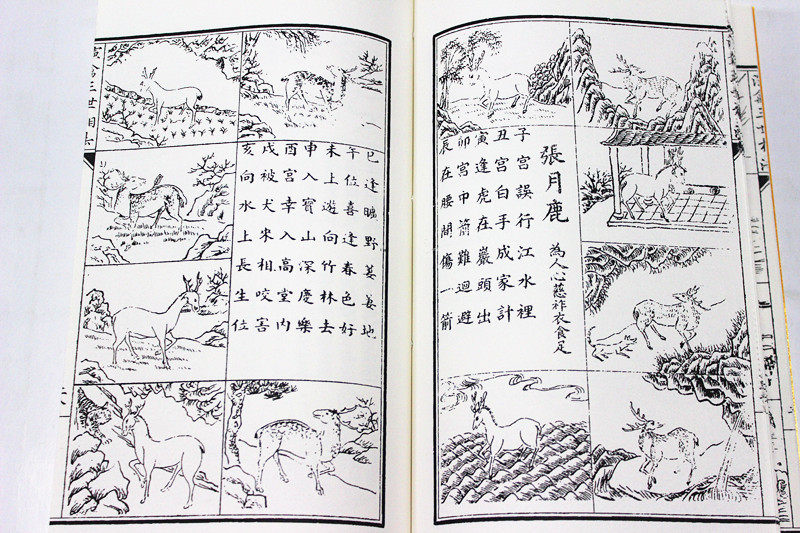 張月鹿
為人心慈祚衣食足
子宮誤行江水裡
丑宮白手成家計
寅逢虎在巖頭出
卯宮巾箭難迴避
辰在腰間傷一箭
巳逢曠野萋萋地
午位喜逢春色好
未上遊向竹林去
申入寶山深慶樂
酉宮幸入高堂內
戌被犬來相咬害
亥向水上長生位
三世相法